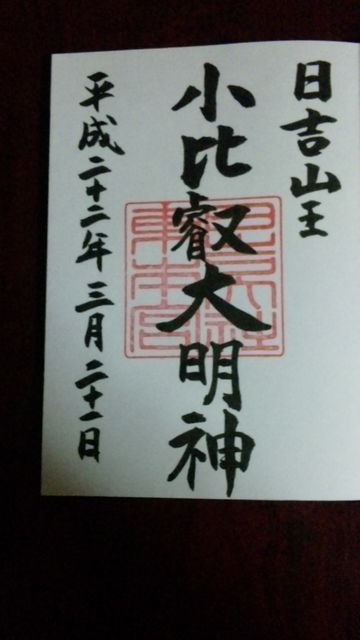 日吉山王
小比叡大明神
平成二十二年三月二十一日